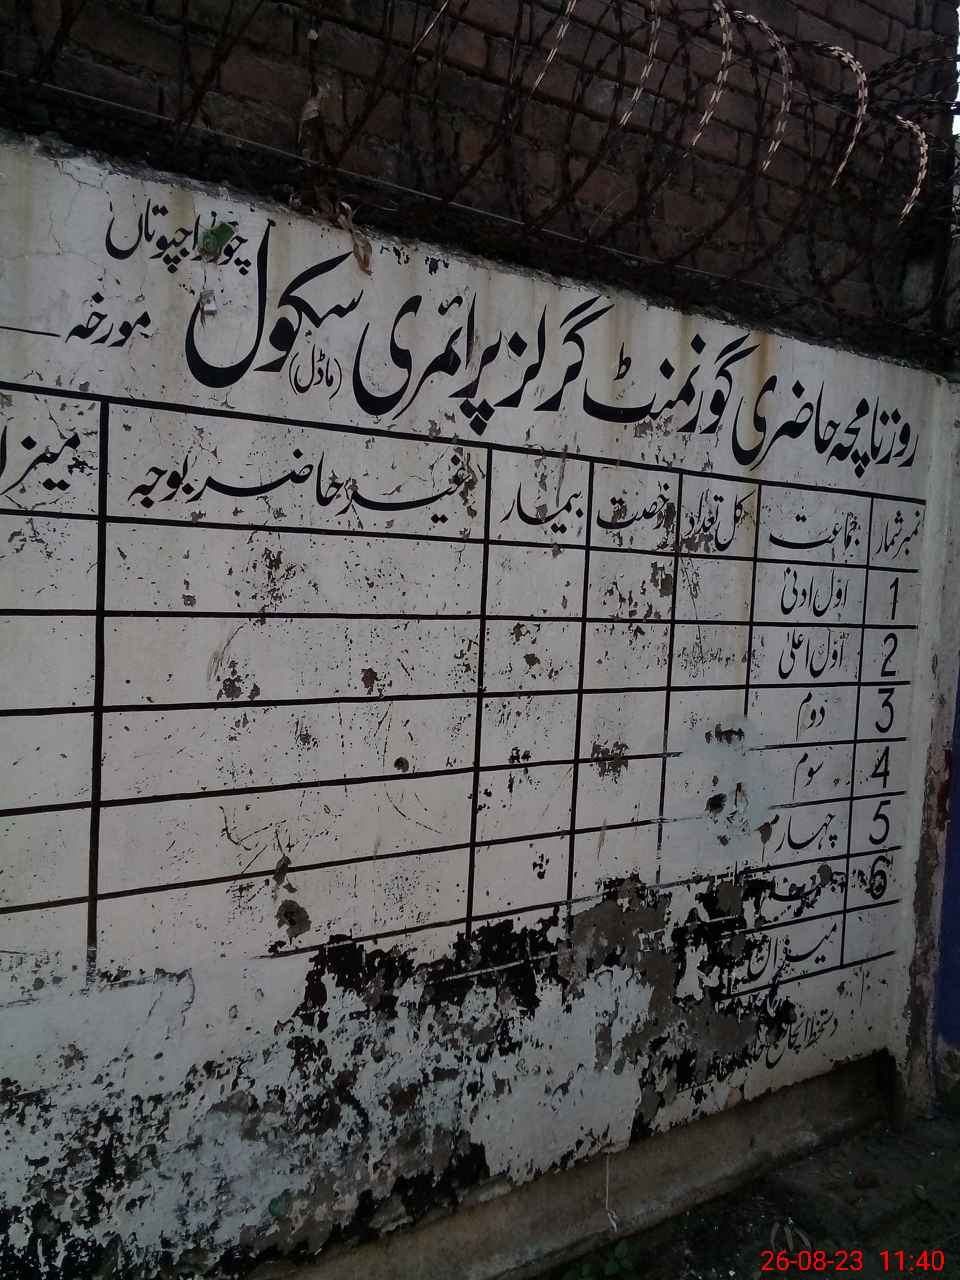 روزنامچہ حاضری گورنمنٹ گرلز پرائمری سکول (ماڈل)
مورخہ
نمبر شمار جماعت کل تعداد رخصت بیمار غیر حاضر بوجہ
1 اول ادنیٰ
2 اول اعلیٰ
3 دوم
4 سوم
5 چہارم
6
میزان
دستخط انچارج
26-08-23 11:40